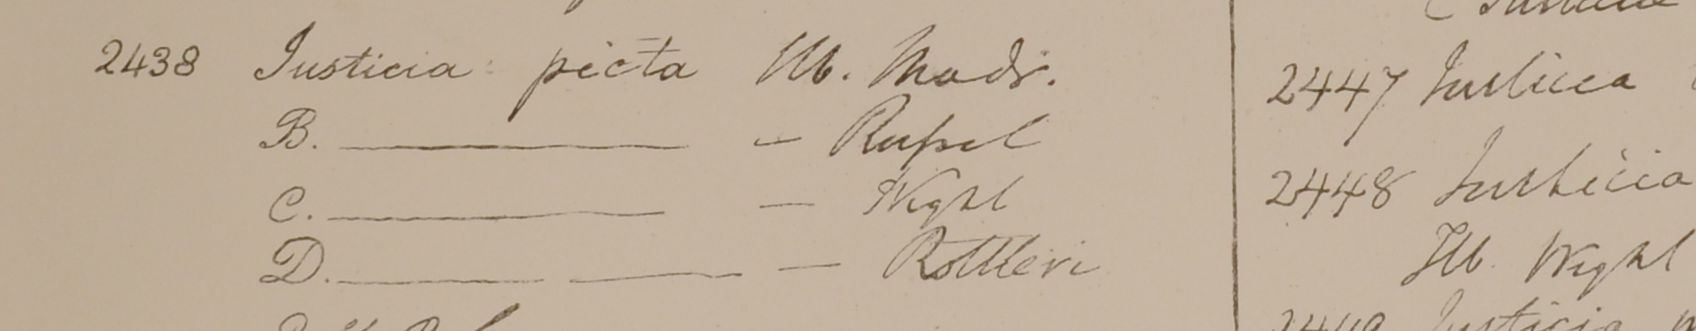 2438 Justicia picta Hb. Madr.
B. ——— — Russel
C. ——— — Wight
D. ——— ——— — Rottleri
2447 Justicia
2448 Justicia
Hb. Wight
2449 Justicia